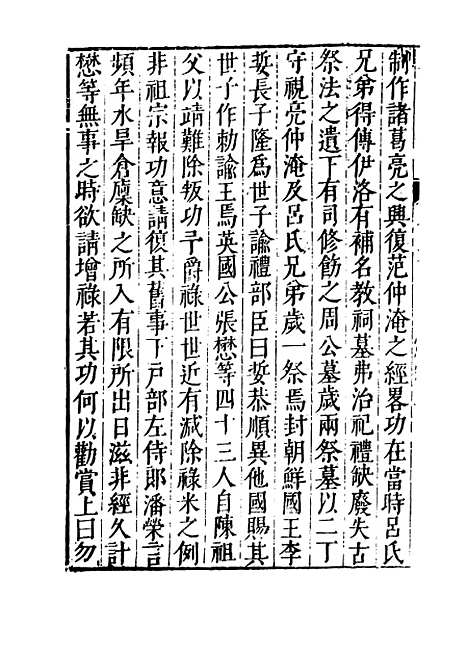 制作諸葛亮之興復范仲淹之經畧功在當時呂氏
兄弟得傳伊洛有補名教祠墓弗治祀禮缺廢失古
祭法之遺下有司修飭之周公墓歲兩祭墓以二丁
守視亮仲淹及呂氏兄弟歲一祭焉封朝鮮國王李
娎長子隆爲世子諭禮部臣曰娎恭順異他國賜其
世子作勅諭王焉英國公張懋等四十三人自陳祖
父以靖難除叛功予爵祿世世近有減除祿米之例
非祖宗報功意請復其舊事下戸部左侍郎潘榮言
頻年水旱倉廩缺乏所入有限所出日滋非經久計
懋等無事之時欲請增祿若其功何以勸賞上曰勿